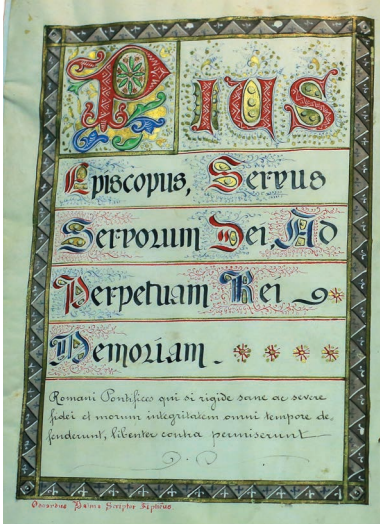 Pius
Episcopus, Servus
Servorum Dei, Ad
Perpetuam Rei
Memoriam.
Romani Pontifices qui si rigide sane ac severe
fidei et morum integritatem omni tempore de
fenderunt, libenter contra permiserunt
Scriptor